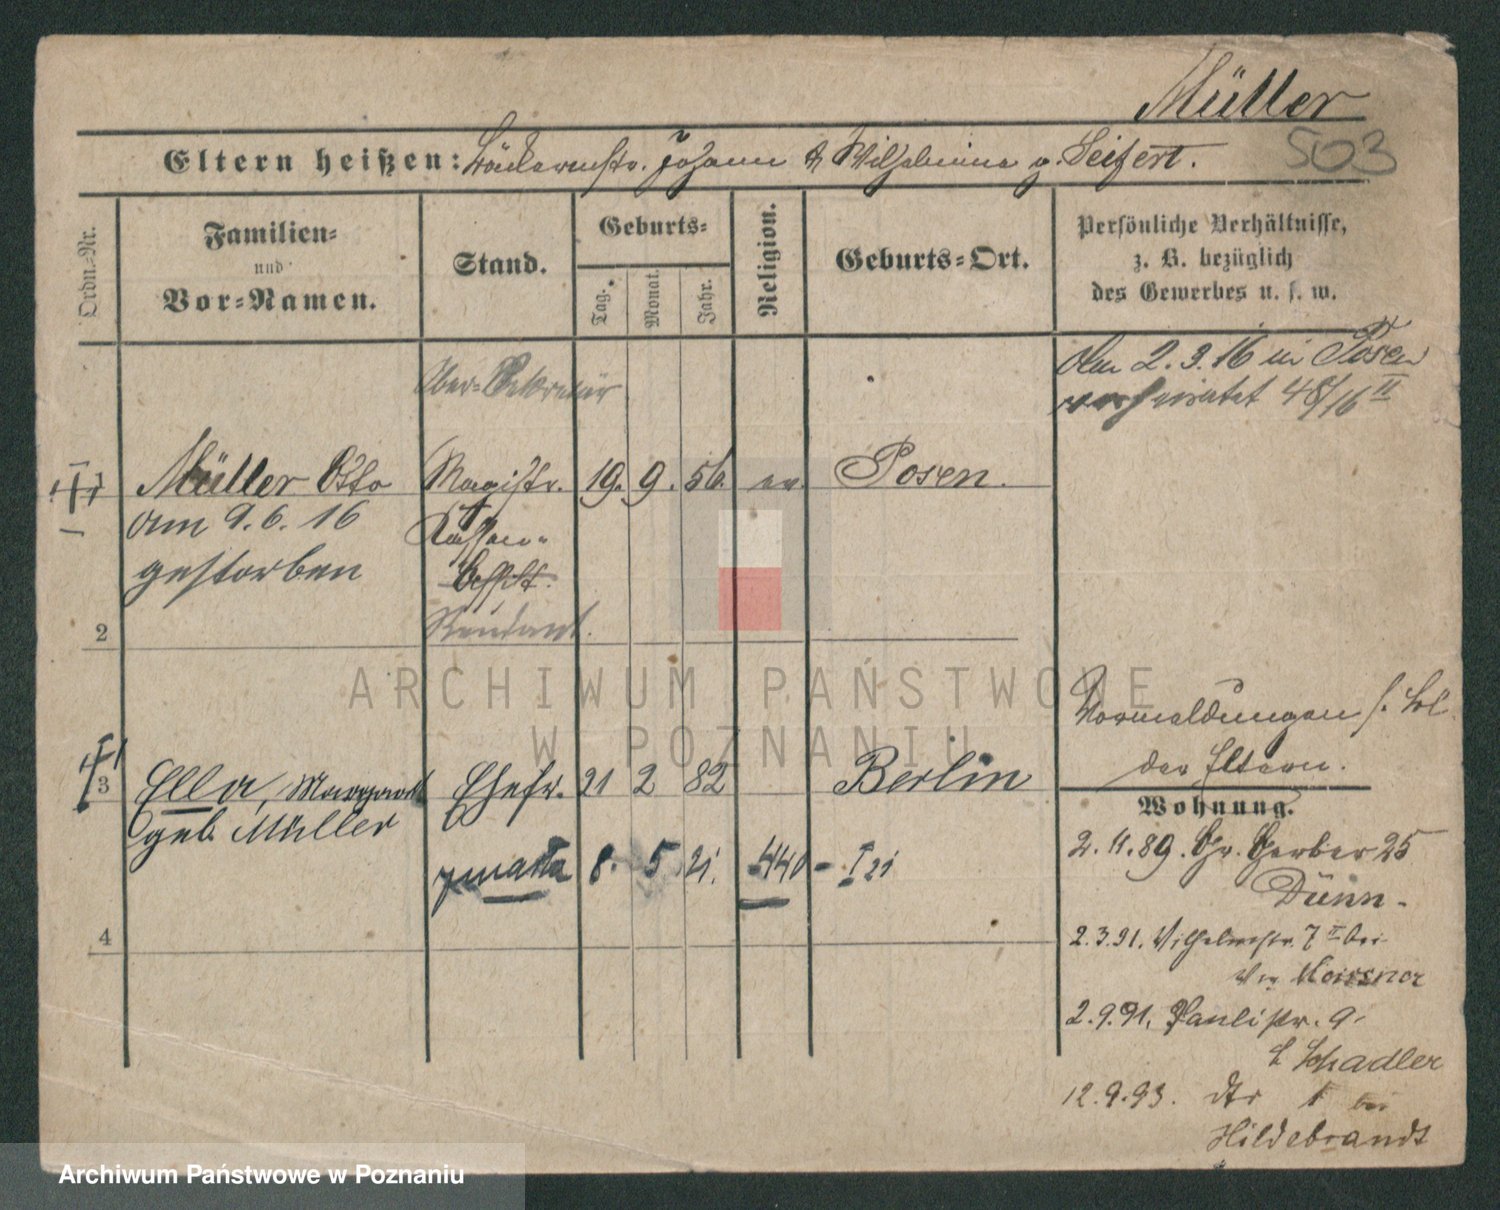 Müller
503
Eltern heißen: Bäckermstr. Johann & Wilhelmine g. Seifert.
Ordn.-Nr.
Familien-
und
Vor-Namen.
Stand.
Geburts-
Tag.
Monat.
Jahr.
Religion.
Geburts-Ort.
Persönliche Verhältnisse,
z. B. bezüglich
des Gewerbes u. s. w.
Am 2.3.16 in Posen
verheiratet 48/16 II
Ober-Sekretär
1 Müller Otto Magistr. 19. 9. 56. ev. Posen.
am 9.6.16
gestorben
Kassen-
Assist.
Rendant.
2
Vormeldungen s. bl
der Eltern.
3 Ella, Margareth Ehefr. 21 2 82 Berlin
geb. Müller
zmarła 8. 5 21. 440 - I 21
4
Wohnung.
2.11.89. Gr. Gerber 25
Dünn-
2.3.91. Wilhelmstr. 7 II bei
2.9.91. Paulistr. 9.
b Schadler
12.9.93. dto 1 bei
Hildebrandt
ARCHIWUM PAŃSTWOWE
W POZNANIU
Archiwum Państwowe w Poznaniu